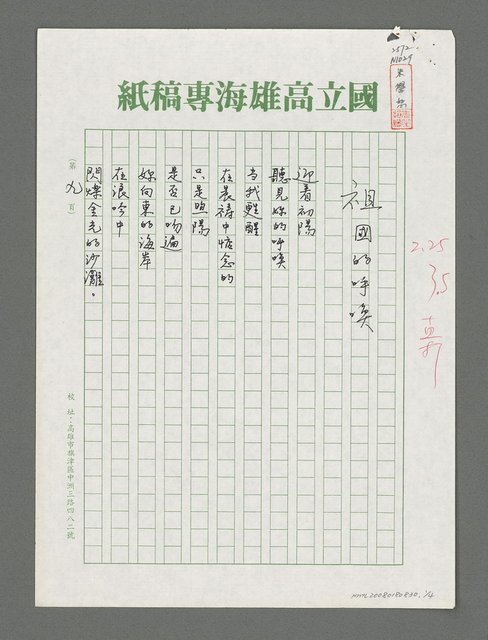 2572
N1029
朱學恕
國立高雄海專稿紙
祖國的呼喚
迎着初陽
聽見妳的呼喚
当我甦醒
在晨禱中惦念的
只是煦陽
是否已吻遍
妳向東的海岸
在浪吟中
閃爍金光的沙灘。
(第九頁)
校址:高雄市旗津區中洲三路四八二號
2.25
35
NMTL20080180830, 1/4